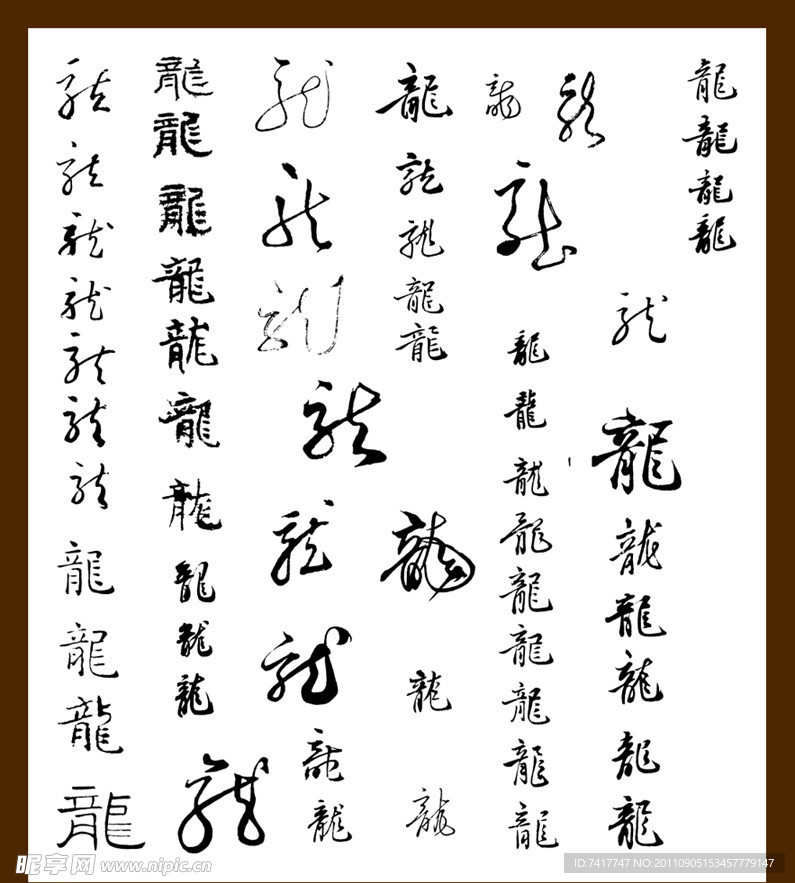 龍龍龍龍
龍龍龍龍龍龍龍龍
龍龍龍龍龍龍龍龍龍龍龍
龍龍龍龍龍龍龍龍
龍龍龍龍龍龍龍龍
龍龍龍龍龍龍龍龍龍龍龍
龍龍龍龍龍龍龍龍龍龍龍
昵享网 www.nipic.cn
ID:7417747 NO:20110905153457779147